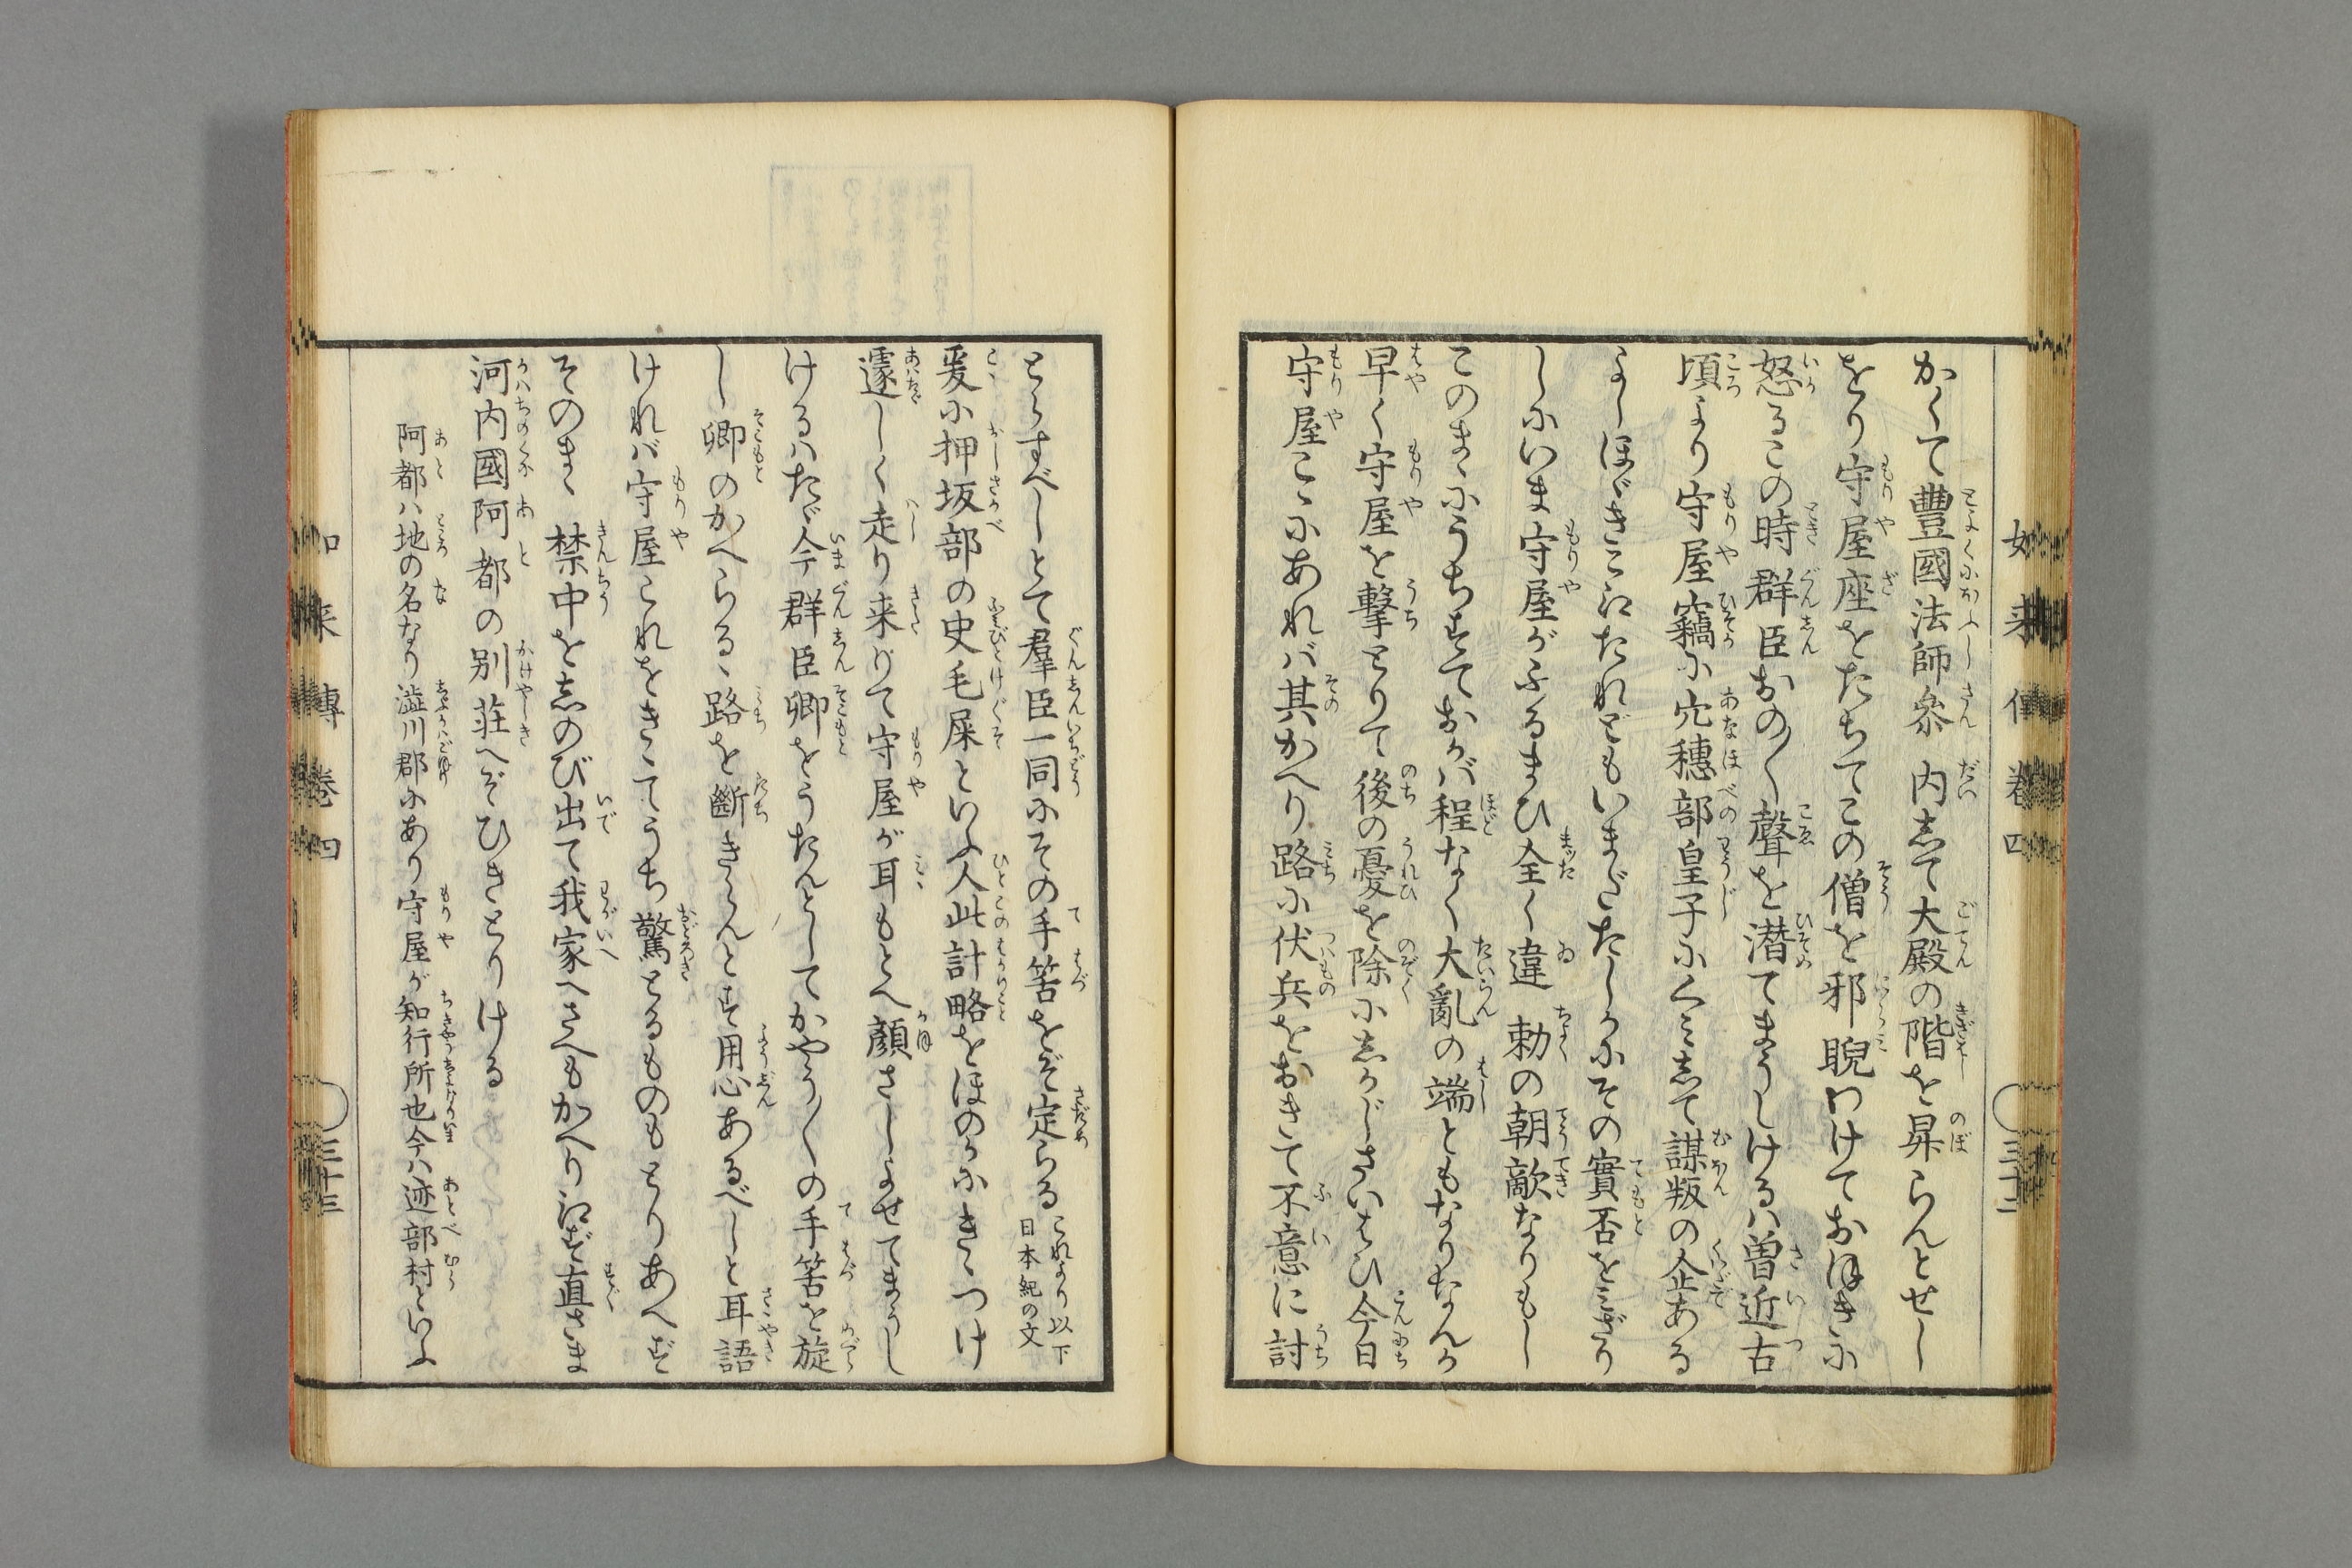 かくて豊國法師參 内して大殿の階を昇らんとせし
をり守屋座をたちてこの僧を邪睨つけておほきに
怒るこの時群臣おの〱聲を潜てまうしけるハ曽近古
頃より守屋竊に穴穗部皇子にくみして謀叛の企ある
よしほゞきこえたれどもいまだたしかにその實否をみざり
しにいま守屋がふるまひ全く違 勅の朝敵なりもし
このまゝにうちすておかバ程なく大亂の端ともなりなんか
早く守屋を撃とりて後の憂を除にしかじさいはひ今日
守屋こゝにあれバ其かへり路に伏兵をおきて不意に討
とらすべしとて羣臣一同にその手筈をぞ定らる これより以下日本紀の文
爰に押坂部の史毛屎といふ人此計略をほのかにきゝつけ
遽しく走り来りて守屋が耳もとへ顔さしよせてまうし
けるハたゞ今群臣卿をうたんとしてかやう〱の手筈を旋
し卿のかへらるゝ路を斷きらんとす用心あるべしと耳語
けれバ守屋これをきゝてうち驚とるものもとりあへず
そのまゝ 禁中をしのび出て我家へさへもかへりえず直さま
河内國阿都の別荘へぞひきとりける
阿都ハ地の名なり澁川郡にあり守屋が知行所也今ハ迹部村といふ
如来傳卷四
三十三